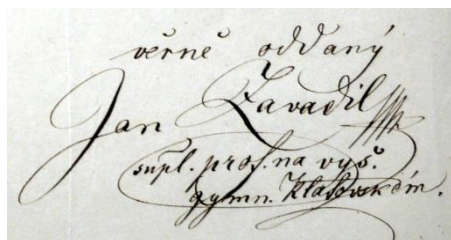 věrně oddaný
Jan Zavadil
supl. prof. na vyš.
gymn. Klatovském.